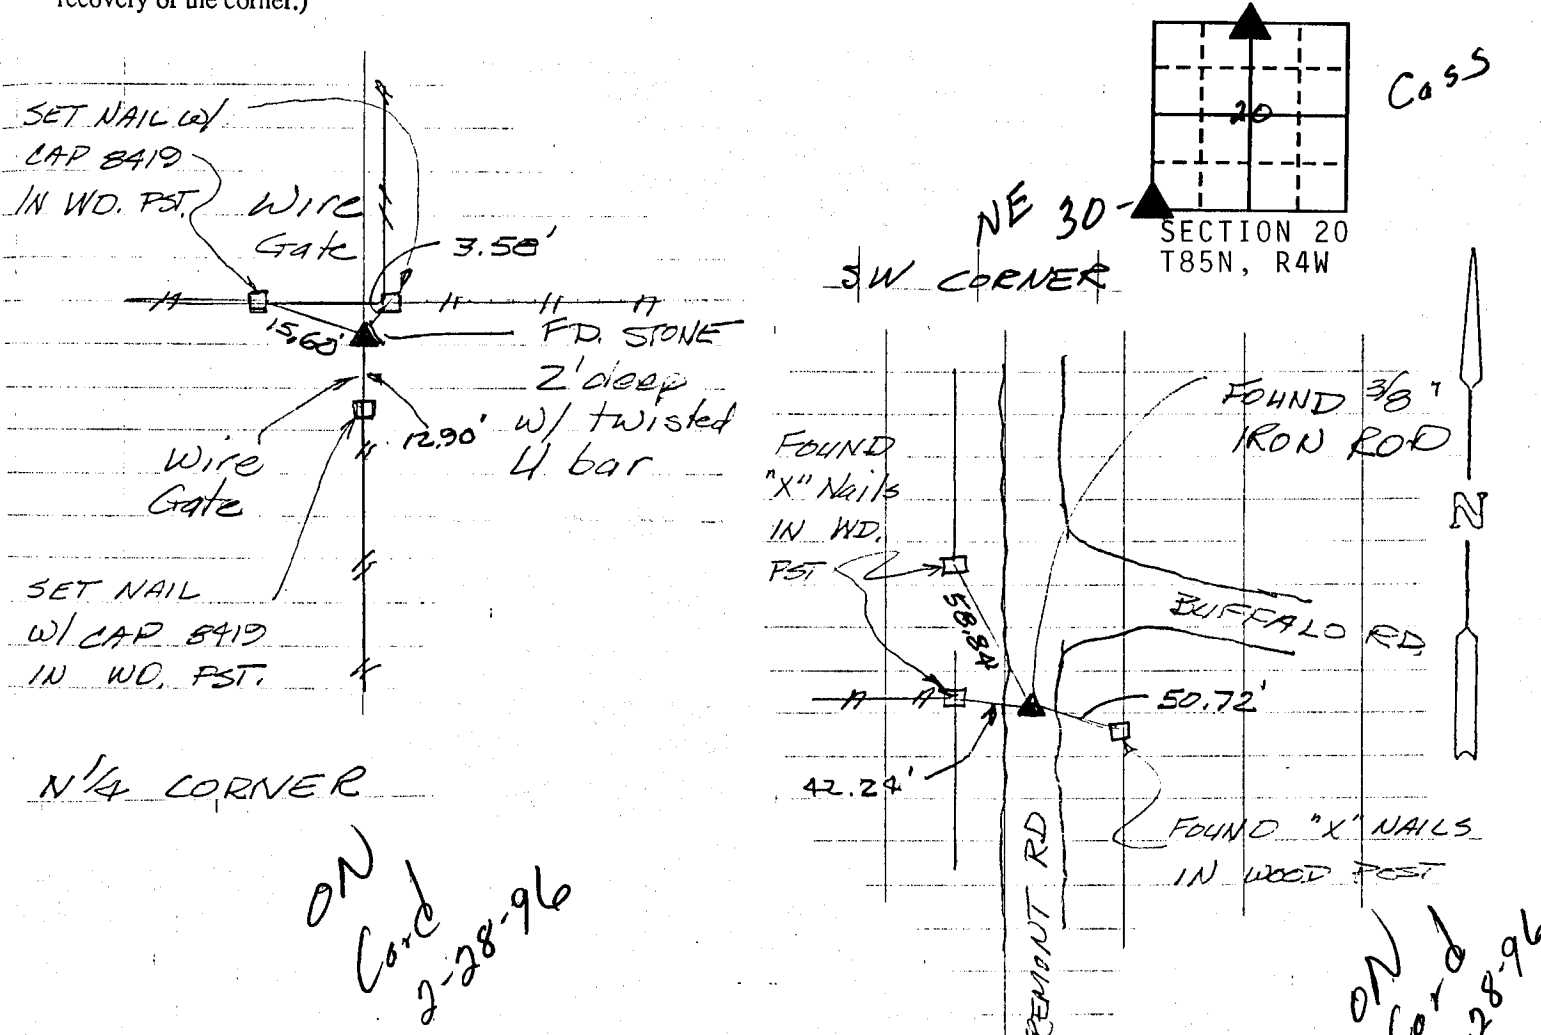 recovery of the corner.)
SET NAIL W/
CAP 8419
IN WD. PST.
Wire
Gate
3.58'
15.60'
FD. STONE
2' deep
w/ twisted
U bar
12.90'
Wire
Gate
SET NAIL
W/ CAP 8419
IN WD. PST.
N 1/4 CORNER
ON
Card
2-28-96
20
Cass
NE 30-
SECTION 20
T85N, R4W
SW CORNER
FOUND 3/8"
IRON ROD
N
FOUND
"X" Nails
IN WD.
PST
58.84'
BUFFALO RD.
50.72'
42.24'
FOUND "X" NAILS
IN WOOD POST
REMONT RD
ON
Card
28-96